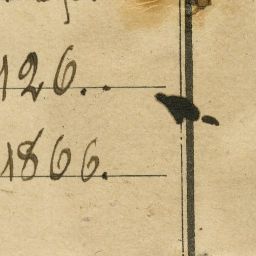 126..
1866.